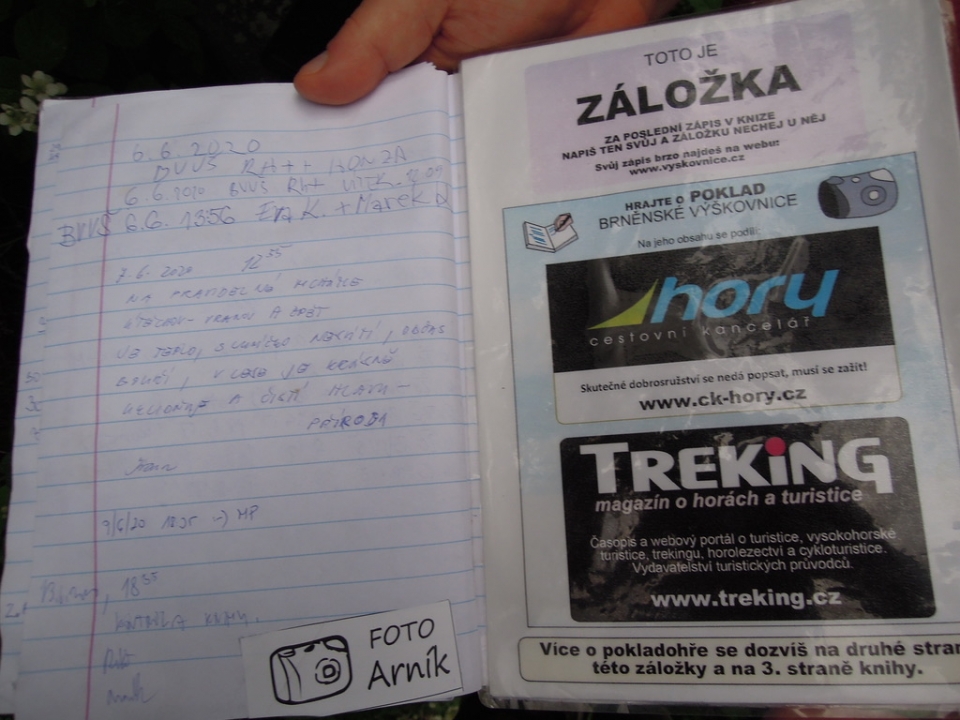 6.6.2020
BVVŠ RH++ HONZA
6.6.2020 BVVŠ RH+ VÍTK.
BVVŠ 6.6. 13:56 Eva K. + Marek
7.6. 2020 12 35
NA PRAVIDELNÉ
ÚTĚCHOV - VRANOV A ZPĚT
JE TEPLO, SLUNÍČKO NESVÍTÍ, OBČAS
V LESE JE KRÁSNĚ
A ČISTÍ HLAVU -
PŘÍRODA
9/6/20 18:35 -> MP
18 55
KNIHY.
FOTO
Arník
TOTO JE
ZÁLOŽKA
ZA POSLEDNÍ ZÁPIS V KNIZE
NAPIŠ TEN SVŮJ A ZÁLOŽKU NECHEJ U NĚJ
Svůj zápis brzo najdeš na webu:
www.vyskovnice.cz
HRAJTE o POKLAD
BRNĚNSKÉ VÝŠKOVNICE
Na jeho obsahu se podílí:
hory
cestovní kancelář
Skutečné dobrosružství se nedá popsat, musí se zažít!
www.ck-hory.cz
TREKiNG
magazín o horách a turistice
Časopis a webový portál o turistice, vysokohorské
turistice, trekingu, horolezectví a cykloturistice.
Vydavatelství turistických průvodců.
www.treking.cz
Více o pokladohře se dozvíš na druhé stran
této záložky a na 3. straně knihy.